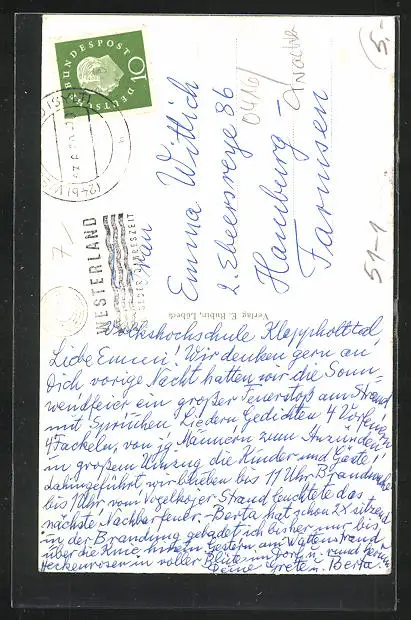 DEUTSCHE BUNDESPOST
10
WESTERLAND
JEDER JAHRESZEIT
Frau
Emma Wittich
2. Ebeersreye 86
Hamburg -
Farmsen
0416/
5.-
51-1
7/-
Verlag E. Rubin, Lübeck
Volkshochschule Klappholttal
Liebe Emmi! Wir denken gern an
Dich vorige Nacht hatten wir die Sonn-
wendfeier ein großer Feuerstoß am Strand
mit Sprüchen Liedern Gedichten 4
4 Fackeln, von jg. Männern zum Anzünden
in großem Umzug die Kinder und Gäste
dahingeführt wir blieben bis 11 Uhr Brandwache
bis 1 Uhr vom Vogelkojer Strand leuchtete das
nächste Nachbarfeuer - Berta hat schon 2x sitzend
in der Brandung gebadet ich bisher nur bis
über die Knie, gestern am Wattenstrand
Heckenrosen in voller Blüte im Dorf u. rund herum
Deine Grete u. Berta